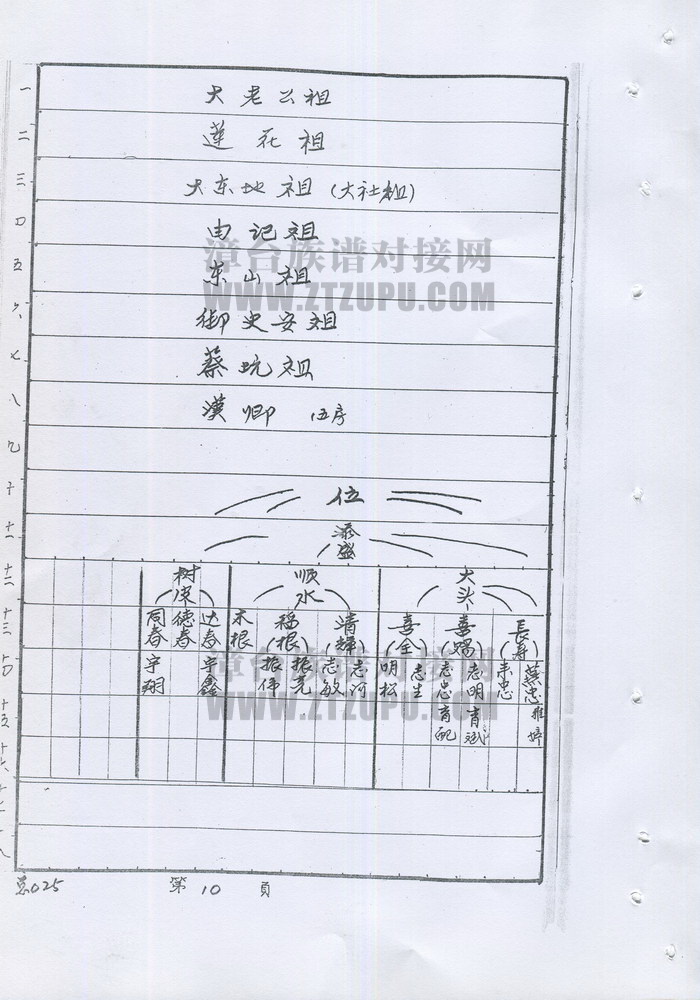 一
大老公祖
二
莲花祖
三
大东地祖（大社祖）
四
由记祖
漳台族谱对接网
五
东山祖
WWW.ZTZUPU.COM
六
御史安祖
七
蔡坑祖
八
漢卿 伍序
九
十
位
十一
添盛
十二
大头
顺水
树深
十三
長寿
喜赐
喜全
清辉
福根
木根
达春
德春
同春
十四
蕪忠
来忠
志明
志忠
志生
明松
志河
志敏
振亮
振伟
宇鑫
宇翔
漳台族谱对接网
WWW.ZTZUPU.COM
十五
雅婷
育斌
育配
十六
十七
十八
总025 第10頁